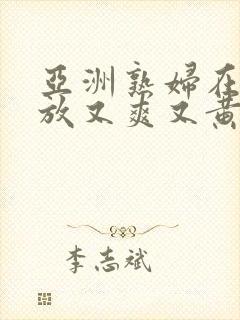 亞洲熟婦在
放又爽又黃
李志斌